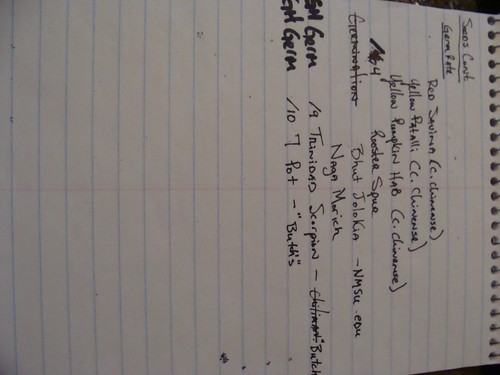 Seeds Cont.
Germ Rate
Red Savina (c. chinense)
Yellow Fatalli (c. chinense)
Yellow Pumpkin HAB (c. chinense)
/4 Rooster Spur
Germination Bhut Jolokia - NMSU.edu
Naga Morich
GH Germ /9 Trinidad Scorpion - Butch
GH Germ /10 7 Pot - "Butch's"